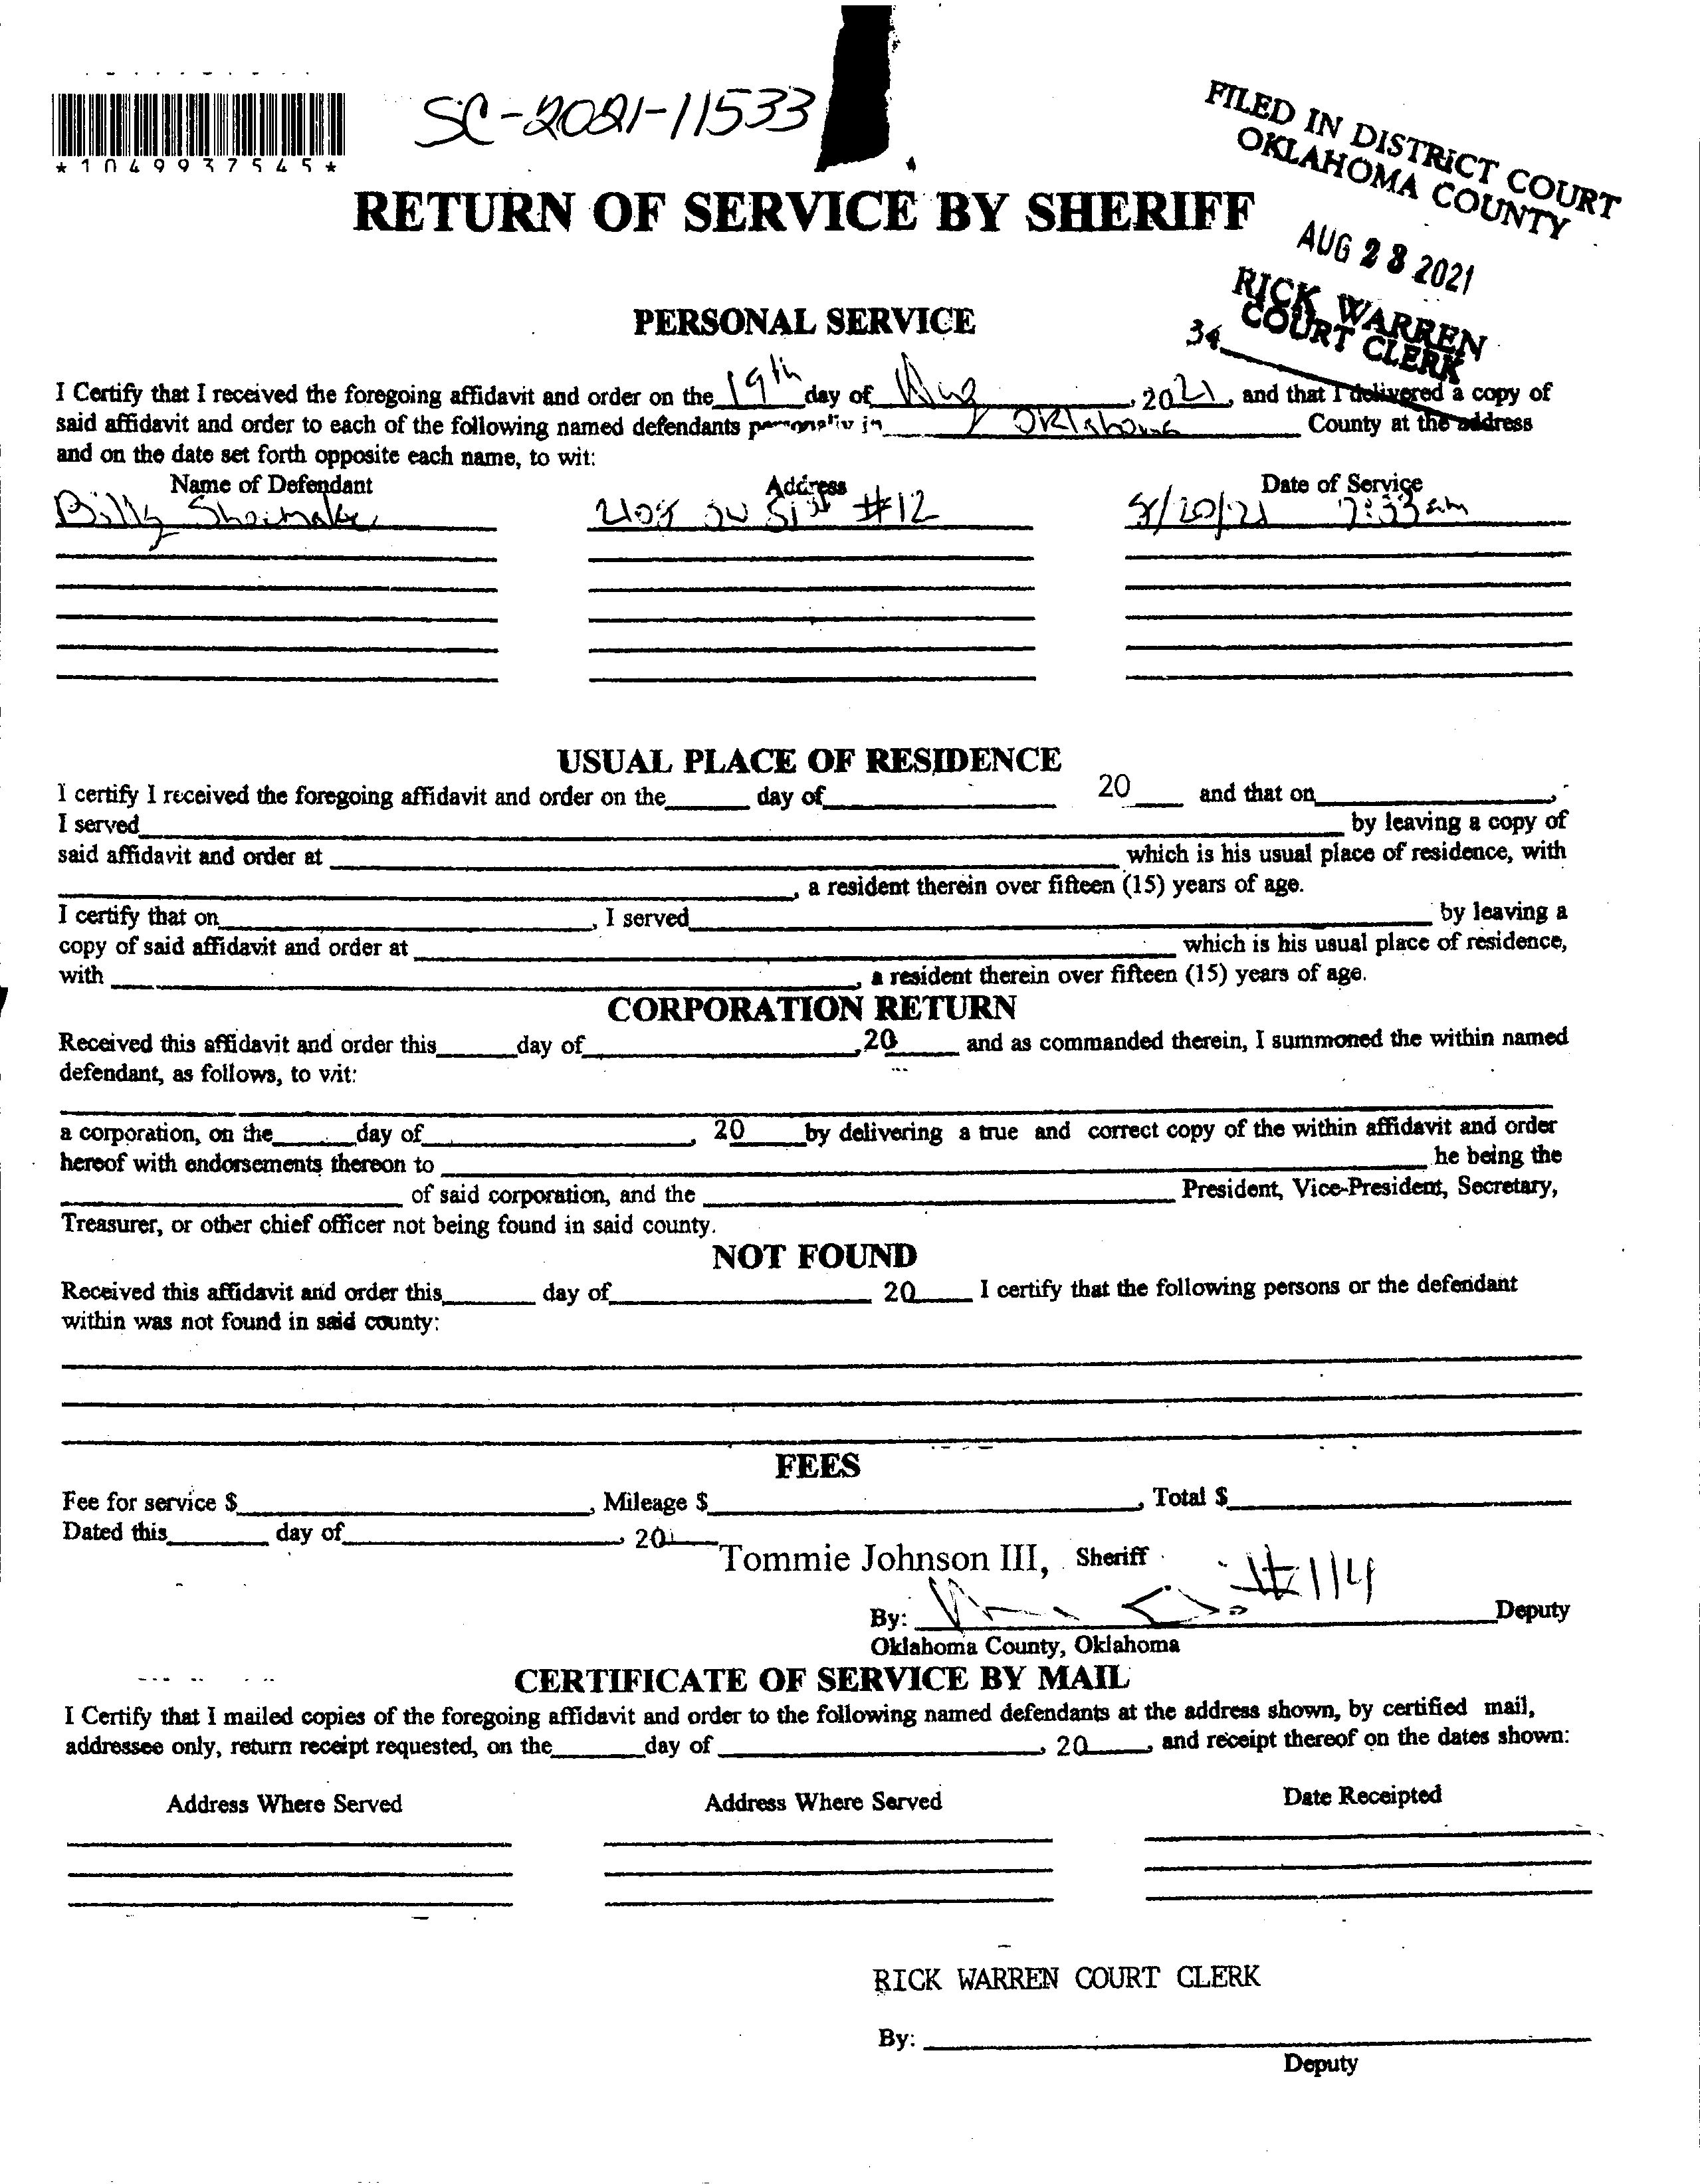 SC-2021-11533
*1049937545*
FILED IN DISTRICT COURT
OKLAHOMA COUNTY
RETURN OF SERVICE BY SHERIFF
AUG 23 2021
RICK WARREN
COURT CLERK
34
PERSONAL SERVICE
I Certify that I received the foregoing affidavit and order on the 19th day of Aug, 2021, and that I delivered a copy of
said affidavit and order to each of the following named defendants personally in Oklahoma County at the address
and on the date set forth opposite each name, to wit:
Name of Defendant Address Date of Service
Billy #12 8/20/21 7:33am
USUAL PLACE OF RESIDENCE
I certify I received the foregoing affidavit and order on the day of 20 and that on ,
I served by leaving a copy of
said affidavit and order at which is his usual place of residence, with
, a resident therein over fifteen (15) years of age.
I certify that on , I served by leaving a
copy of said affidavit and order at which is his usual place of residence,
with , a resident therein over fifteen (15) years of age.
CORPORATION RETURN
Received this affidavit and order this day of ,20 and as commanded therein, I summoned the within named
defendant, as follows, to wit:
a corporation, on the day of , 20 by delivering a true and correct copy of the within affidavit and order
hereof with endorsements thereon to he being the
of said corporation, and the President, Vice-President, Secretary,
Treasurer, or other chief officer not being found in said county.
NOT FOUND
Received this affidavit and order this day of 20 I certify that the following persons or the defendant
within was not found in said county:
FEES
Fee for service $ , Mileage $ , Total $
Dated this day of , 20
Tommie Johnson III, Sheriff
#114
By: Deputy
Oklahoma County, Oklahoma
CERTIFICATE OF SERVICE BY MAIL
I Certify that I mailed copies of the foregoing affidavit and order to the following named defendants at the address shown, by certified mail,
addressee only, return receipt requested, on the day of , 20 , and receipt thereof on the dates shown:
Address Where Served Address Where Served Date Receipted
RICK WARREN COURT CLERK
By:
Deputy